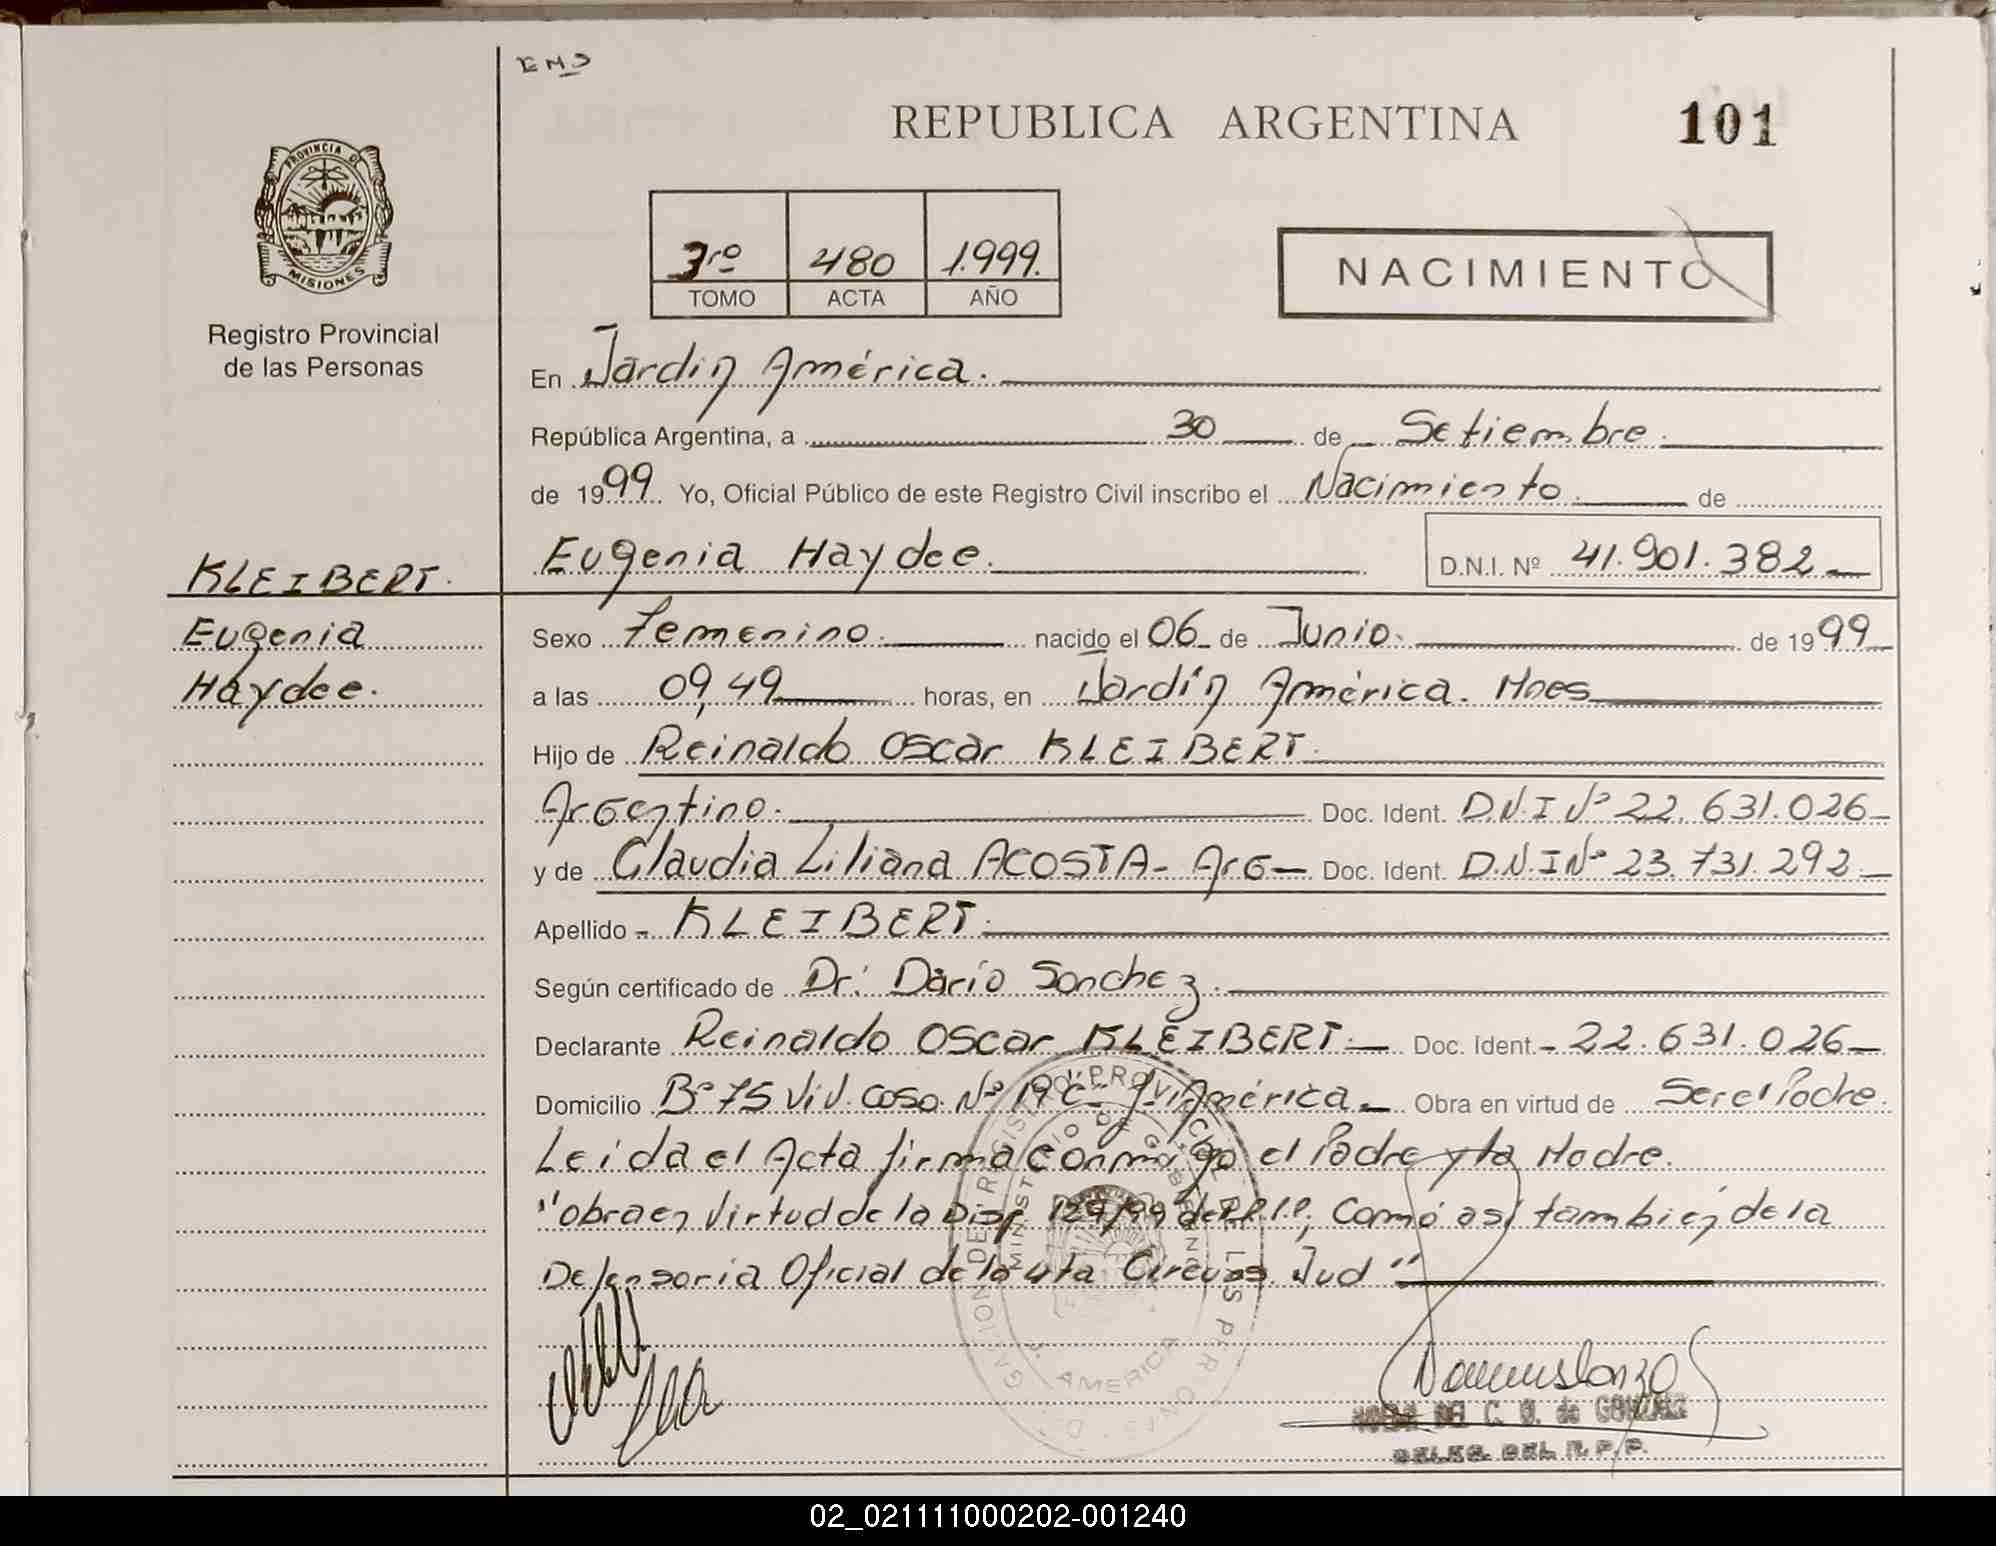 REPUBLICA ARGENTINA
101
PROVINCIA DE
MISIONES
Registro Provincial
de las Personas
3ro 480 1.999.
TOMO ACTA AÑO
NACIMIENTO
En Jardin América.
República Argentina, a 30 de Setiembre.
de 1999 Yo, Oficial Público de este Registro Civil inscribo el Nacimiento. de
KLEIBERT.
Eugenia Haydee.
D.N.I. Nº 41.901.382
Eugenia
Haydee.
Sexo Femenino. nacido el 06 de Junio. de 1999
a las 09,49 horas, en Jardín América. Mnes
Hijo de Reinaldo Oscar KLEIBERT.
Argentino. Doc. Ident. D.N.I Nº 22.631.026
y de Claudia Liliana ACOSTA- Arg Doc. Ident. D.N.I Nº 23.731.292
Apellido - KLEIBERT.
Según certificado de Dr: Dario Sanchez.
Declarante Reinaldo Oscar KLEIBERT. Doc. Ident. 22.631.026
Domicilio Bº 75 Viv. Casa Nº 19 C- J. América. Obra en virtud de Ser el Padre.
Leida el Acta firma conmigo el Padre y la Madre.
"obra en Virtud de la Disp. 127/99 del R.P.P., Como así también de la
Defensoria Oficial de la 4ta Circuns Jud"
DEL C. G. de GONZALEZ
DELEG. DEL R. P. P.
02_021111000202-001240